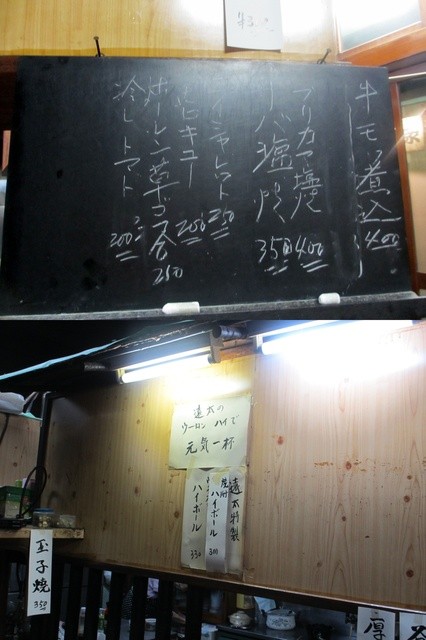 牛モツ煮込 400
ブリカマ塩焼 400
サバ塩焼 350
250
モロキュー 200
ホーレン草ゴマ合 250
冷しトマト 200
遠太の
ウーロンハイで
元気一杯
遠太特製
焼酎ハイボール 300
ハイボール 350
玉子焼 350
厚